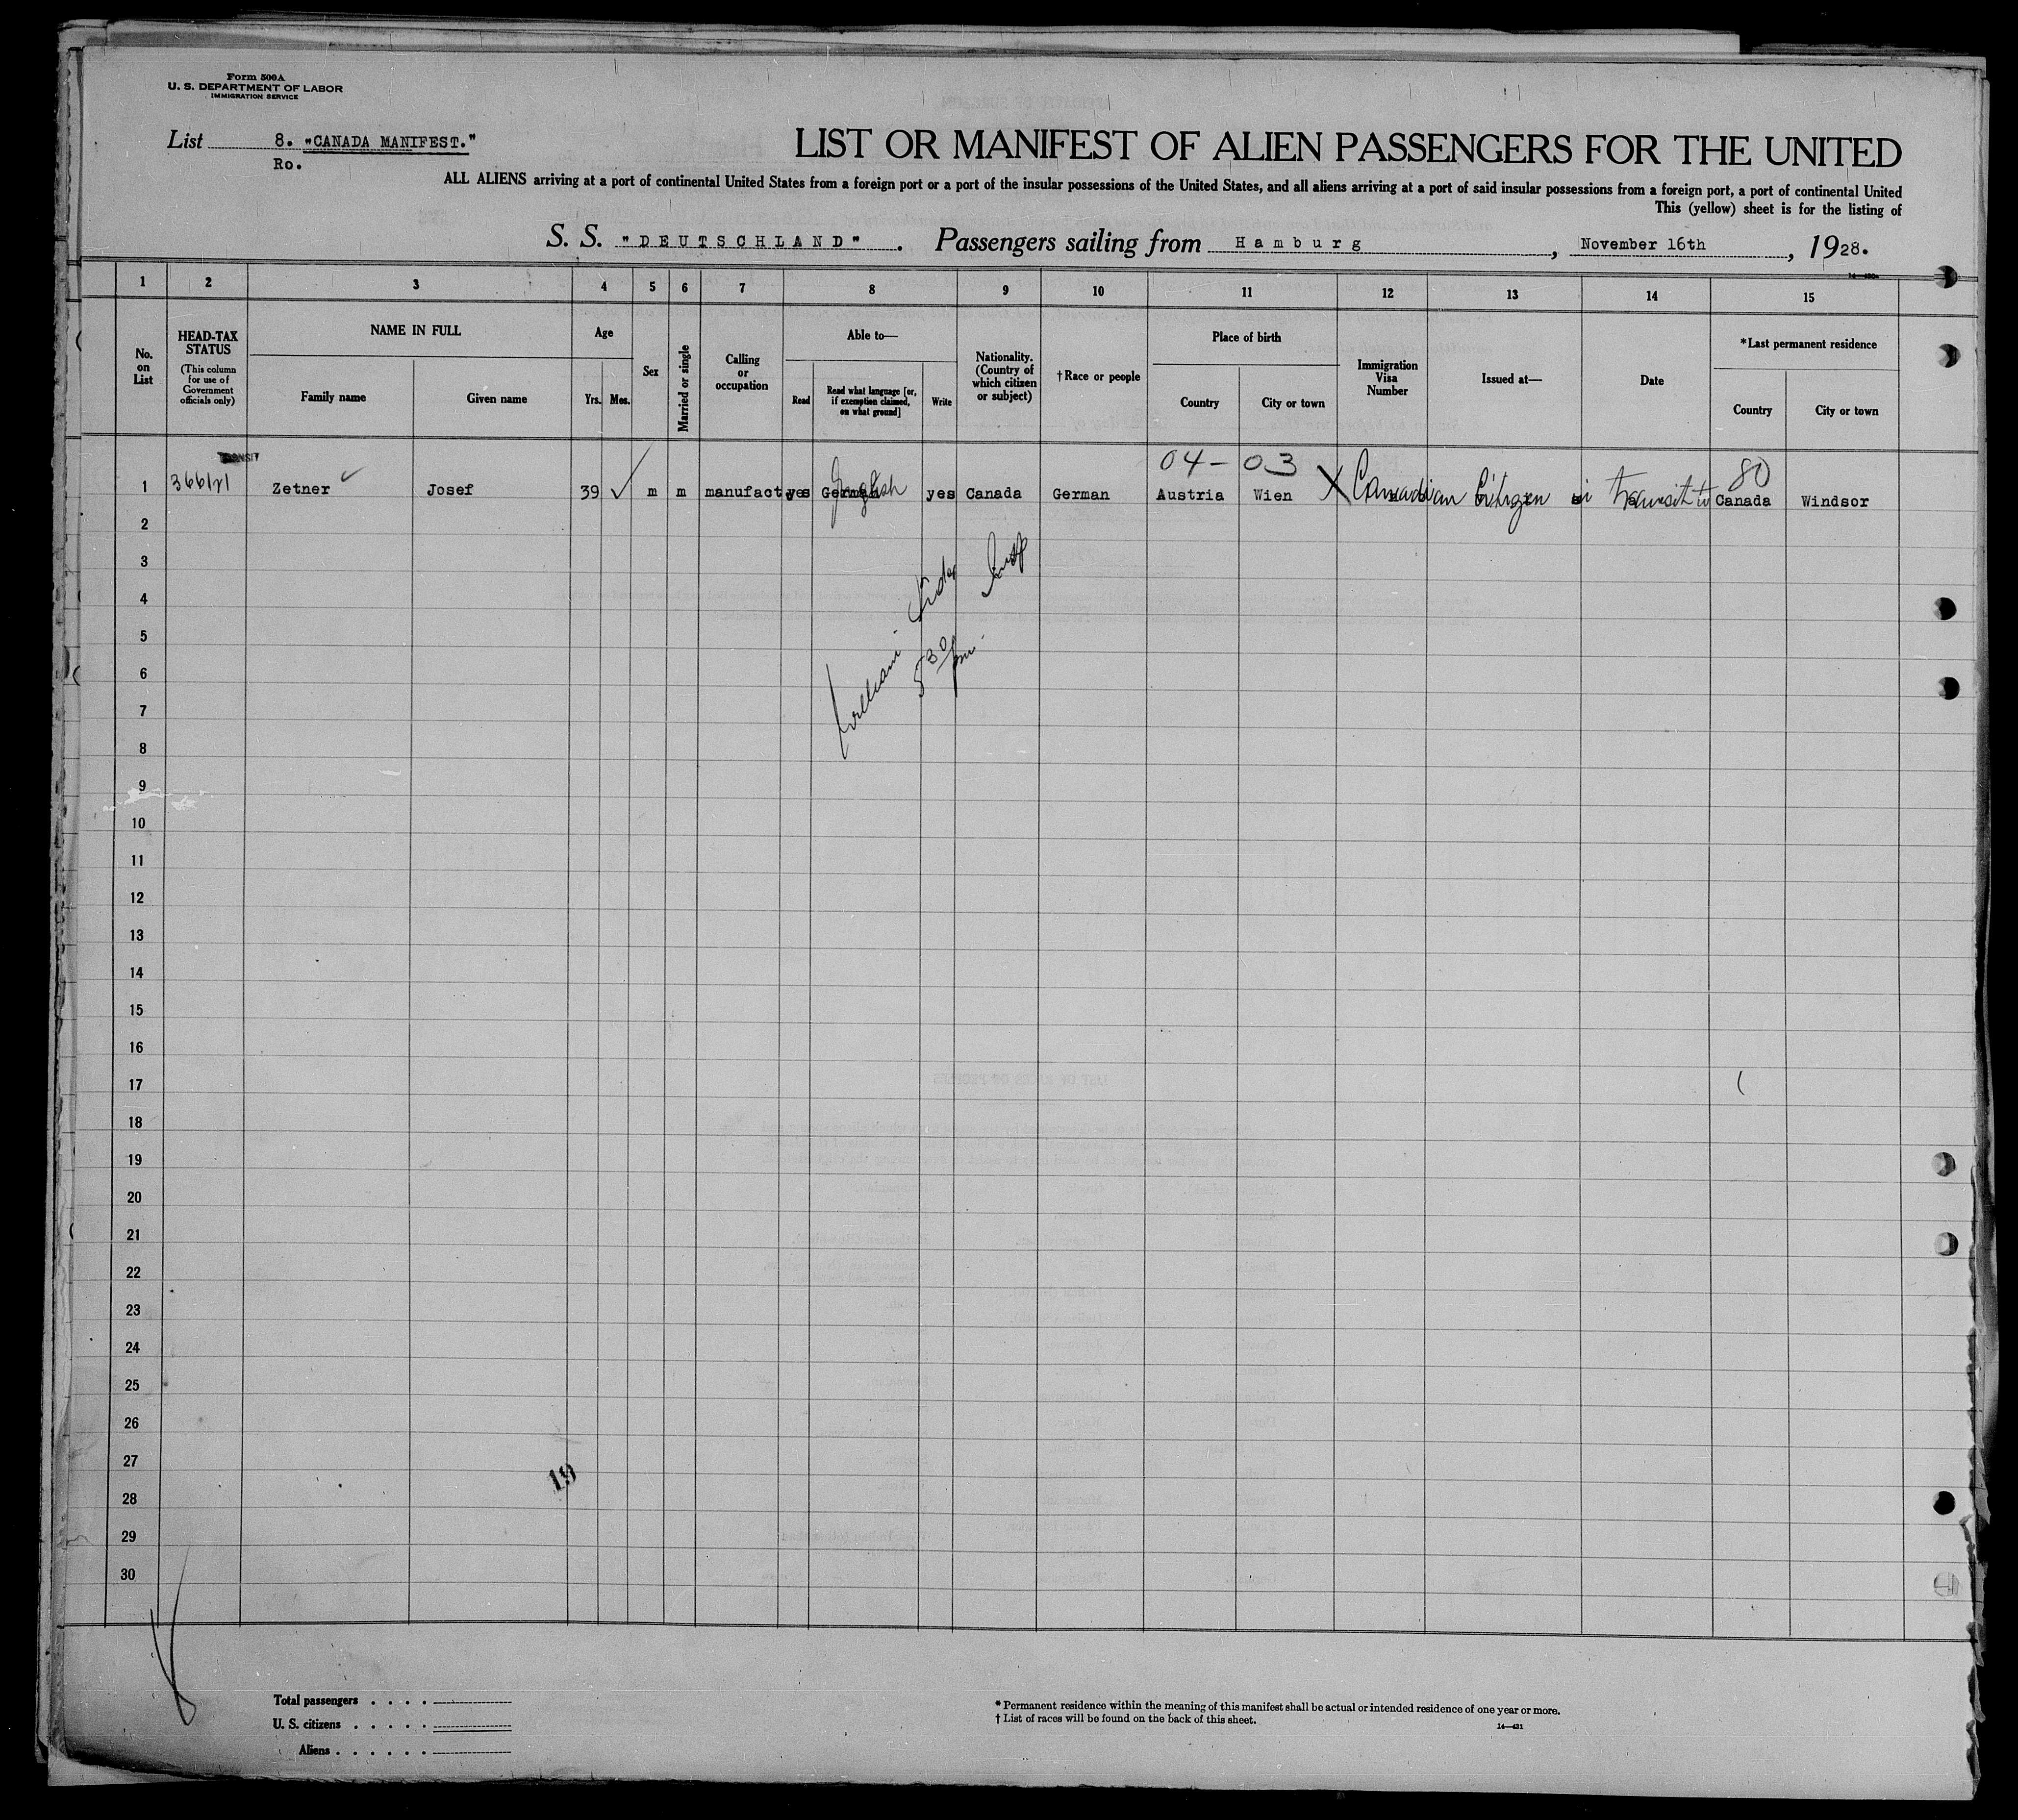 Form 500A
U. S. DEPARTMENT OF LABOR
IMMIGRATION SERVICE
List 8. "CANADA MANIFEST."
Ro.
LIST OR MANIFEST OF ALIEN PASSENGERS FOR THE UNITED
ALL ALIENS arriving at a port of continental United States from a foreign port or a port of the insular possessions of the United States, and all aliens arriving at a port of said insular possessions from a foreign port, a port of continental United
This (yellow) sheet is for the listing of
S. S. "DEUTSCHLAND". Passengers sailing from Hamburg, November 16th, 1928.
1 2 3 4 5 6 7 8 9 10 11 12 13 14 15
No. on List
HEAD-TAX STATUS
(This column for use of Government officials only)
NAME IN FULL
Family name
Given name
Age
Yrs. Mos.
Sex
Married or single
Calling or occupation
Able to—
Read
Read what language [or, if exemption claimed, on what ground]
Write
Nationality. (Country of which citizen or subject)
†Race or people
Place of birth
Country
City or town
Immigration Visa Number
Issued at—
Date
*Last permanent residence
Country
City or town
TRANSIT
04-03
80
1 Zetner Josef 39 m m manufact. yes German English yes Canada German Austria Wien X Canadian Citizen in transit to Canada Windsor
2
3
4
5
6
7
8
9
10
11
12
13
14
15
16
17
18
19
20
21
22
23
24
25
26
27
28
29
30
William
Insp
5 30 pm
19
Total passengers . . . .
U. S. citizens . . . . .
Aliens . . . . . .
* Permanent residence within the meaning of this manifest shall be actual or intended residence of one year or more.
† List of races will be found on the back of this sheet.
14—431